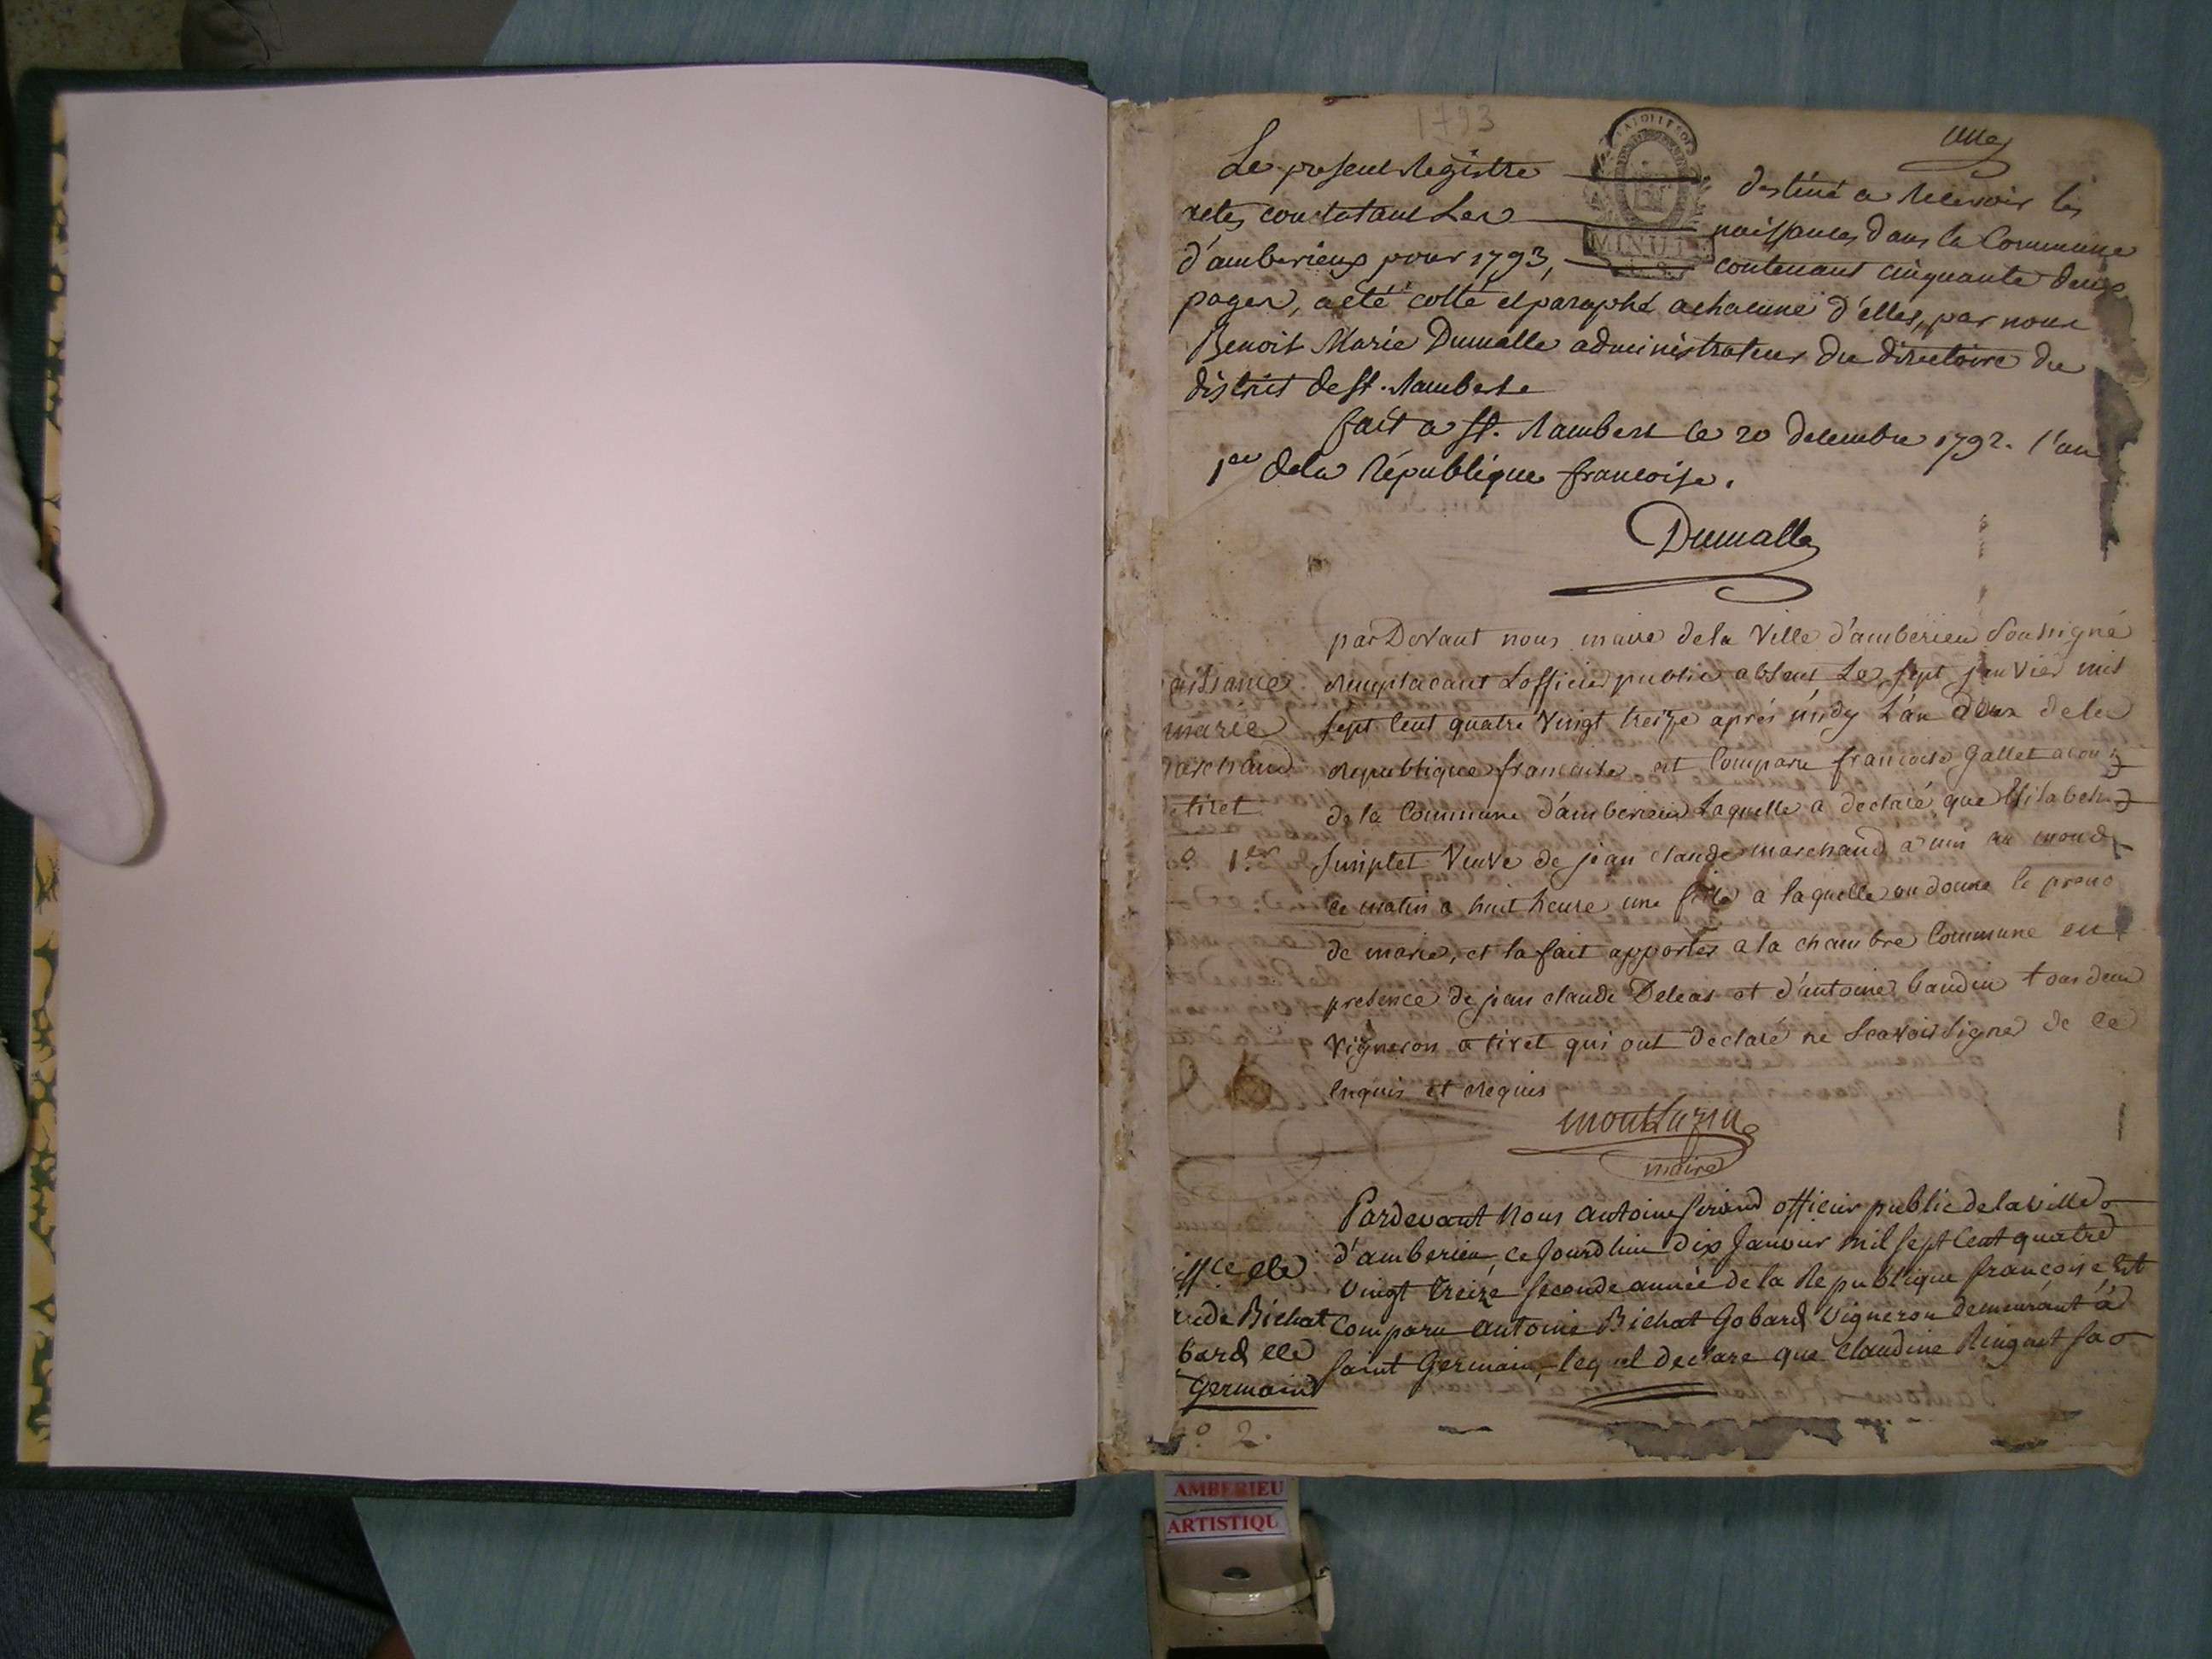 1793
une
Le present Registre destiné a Recevoir les
actes constatant Les naissances dans la Commune
d'amberieux pour 1793, contenant cinquante deux
pages, a été cotté et paraphé a chacune d'elles, par nous
Benoit Marie Dumalle administrateur du directoire du
district de St. Rambert
fait a St. Rambert le 20 decembre 1792. l'an
1er de la République francoise.
Dumalle
MINUTE
par Devant nous maire de la Ville d'amberieu Soussigné
remplacant Lofficier public absent Le sept janvier mil
sept cent quatre Vingt treize aprés midy L'an deux de la
republique francoise est Comparu francoise Gallet
de la Commune d'amberieu Laquelle a declaré que
Simplet Veuve de jean claude marchand a mis au monde
ce matin a huit heure une fille a laquelle on donne le preno
de marie, et la fait apporter a la chambre Commune en
presence de jean claude Deleas et d'antoine baudin tous deux
Vigneron a tiret qui ont declaré ne Scavoir Signer de ce
Enquis et requis
aissance
marie
marchand
tiret
o 1er
montLuzin
maire
Pardevant Nous antoine Sirand officier public de la ville
d'amberieu, ce jourdhui dix Janvier mil sept Cent quatre
Vingt treize seconde année de la Republique françoise Est
Comparu antoine Bichat Gobard Vigneron demeurant à
saint Germain, lequel declare que Claudine Ringuet sa
aude Bichat
bard
Germain
o 2.
AMBERIEU
ARTISTIQU